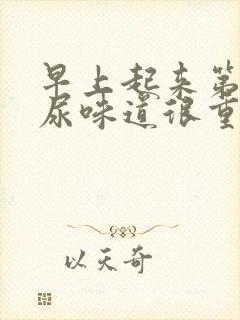 早上起来第
尿味道很重
以天奇